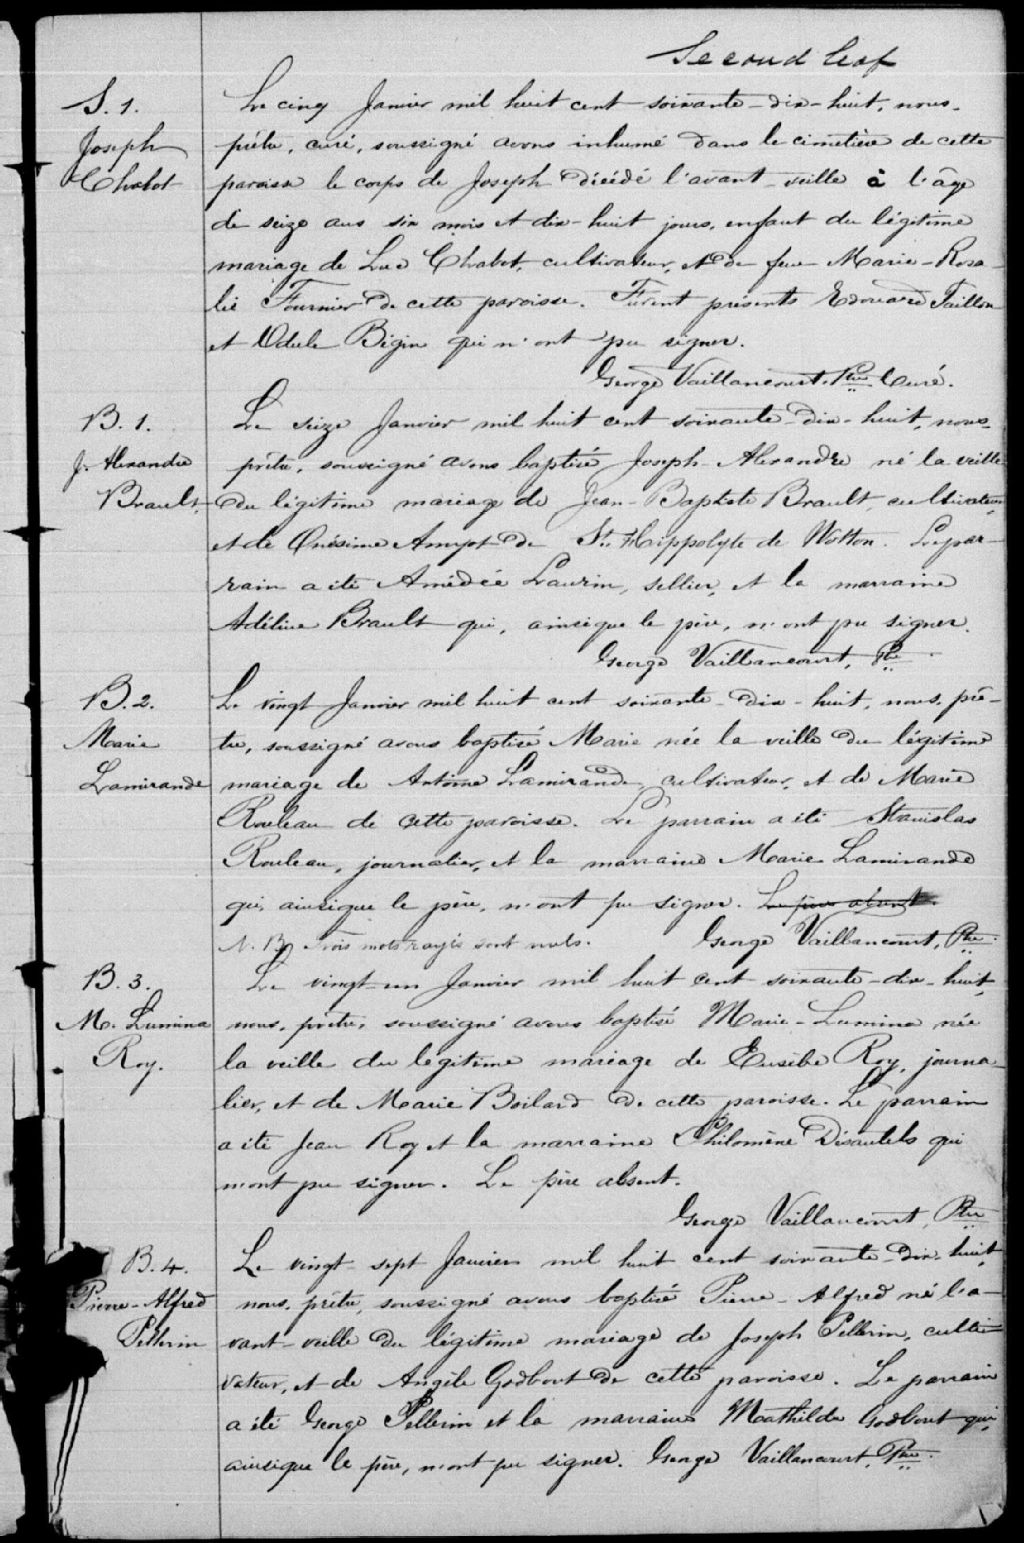 Second leaf
S. 1.
Joseph
Chabot
Le cinq Janvier mil huit cent soixante-dix-huit, nous,
prêtre, curé, soussigné avons inhumé dans le cimetière de cette
paroisse le corps de Joseph décédé l'avant-veille à l'âge
de seize ans six mois et dix-huit jours, enfant du légitime
mariage de Luc Chabot, cultivateur, et de feue Marie-Rosa-
lie Fournier de cette paroisse. Furent présents Edouard Taillon
et Odule Bigin qui n'ont pu signer.
George Vaillancourt, Ptre Curé.
B. 1.
J. Alexandre
Brault,
Le seize Janvier mil huit cent soixante-dix-huit, nous,
prêtre, soussigné avons baptisé Joseph-Alexandre né la veille
du légitime mariage de Jean-Baptiste Brault, cultivateur,
et de Onésime Amyot de St. Hippolyte de Wotton. Le par-
rain a été Amédée Laurin, sellier, et la marraine
Adéline Brault qui, ainsique le père, n'ont pu signer.
George Vaillancourt, Ptre
B. 2.
Marie
Lamirande
Le vingt Janvier mil huit cent soixante-dix-huit, nous, prê-
tre, soussigné avons baptisé Marie née la veille du légitime
mariage de Antoine Lamirande, cultivateur, et de Marie
Rouleau de cette paroisse. Le parrain a été Stanislas
Rouleau, journalier, et la marraine Marie Lamirande
qui, ainsique le père, n'ont pu signer. Le père absent.
N. B. Trois mots rayés sont nuls. George Vaillancourt, Ptre.
B. 3.
M. Lumina
Roy.
Le vingt-un Janvier mil huit cent soixante-dix-huit,
nous, prêtre, soussigné avons baptisé Marie-Lumina née
la veille du légitime mariage de Eusèbe Roy, journa-
lier, et de Marie Boilard de cette paroisse. Le parrain
a été Jean Roy et la marraine Philomène Désautels qui
n'ont pu signer. Le père absent.
George Vaillancourt, Ptre
B. 4.
Pierre-Alfred
Pellerin
Le vingt-sept Janvier mil huit cent soixante-dix-huit,
nous, prêtre, soussigné avons baptisé Pierre-Alfred né l'a-
vant-veille du légitime mariage de Joseph Pellerin, culti-
vateur, et de Angèle Godbout de cette paroisse. Le parrain
a été George Pellerin et la marraine Mathilde Godbout qui,
ainsique le père, n'ont pu signer. George Vaillancourt, Ptre.